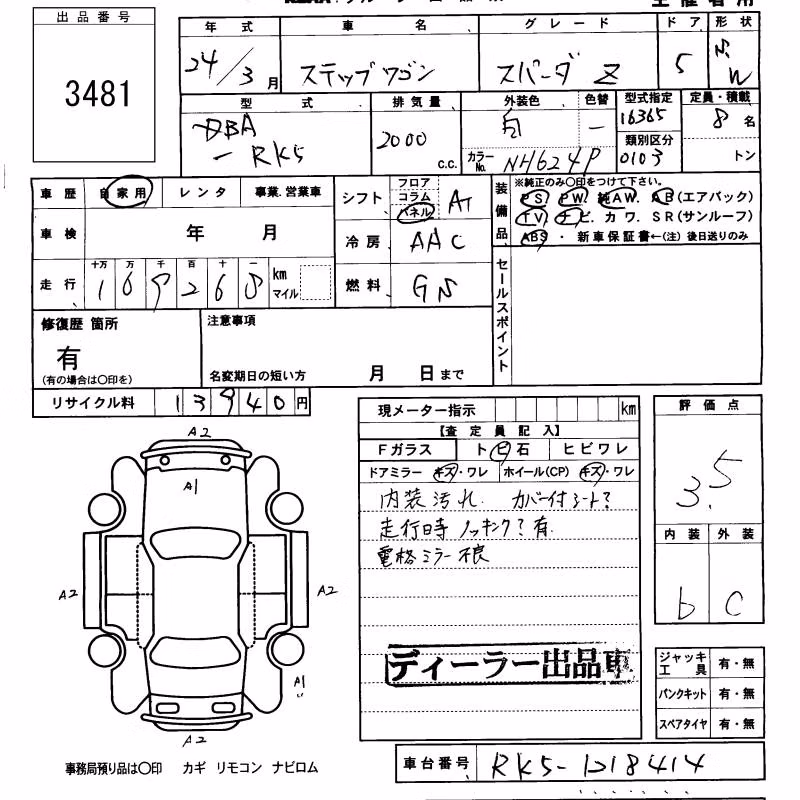 主催者用
出品番号
3481
年式 車名 グレード ドア 形状
24/3月 ステップワゴン スパーダ Z 5 W
型式 排気量 外装色 色替 型式指定 定員・積載
DBA 2000 c.c. 白 ー 16365 8名
ー RK5 カラーNo. NH624P 類別区分 0103 トン
車歴 自家用 レンタ 事業.営業車 シフト フロア コラム パネル AT
装備品 ※純正のみ〇印をつけて下さい。
PS PW. 純AW. AB(エアバック)
TV ナビ. カワ. SR(サンルーフ)
ABS ・ 新車保証書←(注) 後日送りのみ
車検 年 月 冷房 AAC
走行 十万 万 千 百 十 一 km マイル
燃料 セールスポイント
修復歴 箇所 注意事項
有
(有の場合は〇印を) 名変期日の短い方 月 日まで
リサイクル料 13940円
現メーター指示 km 評価点
【査定員記入】 3.5
Fガラス ト ビ 石 ヒビワレ
ドアミラー キズ・ワレ ホイール(CP) キズ・ワレ
内装汚れ. カバー付シート?
走行時 ノッキング?有.
電格ミラー不良
内装 外装
b C
A2
A1
A2 A2
A1
A2
ディーラー出品車
ジャッキ工具 有・無
パンクキット 有・無
スペアタイヤ 有・無
事務局預り品は〇印 カギ リモコン ナビロム
車台番号 RK5-1218414